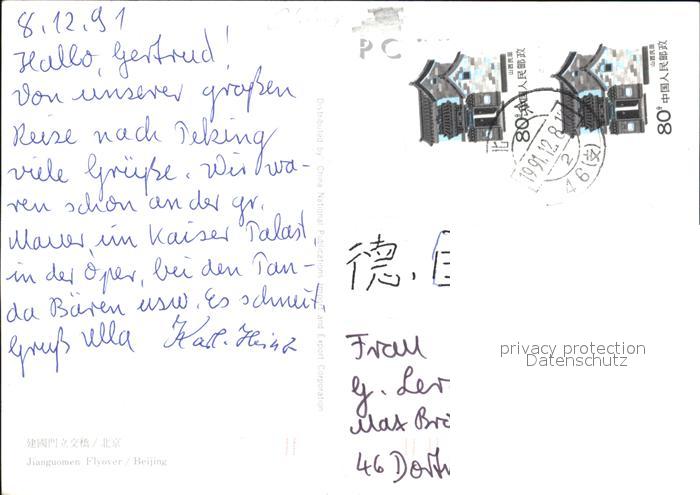 8.12.91
Hallo, Gertrud!
Von unserer großen
Reise nach Peking
viele Grüße. Wir wa-
ren schon an der gr.
Mauer, im Kaiser Palast,
in der Oper, bei den Pan-
da Bären usw. Es schneit.
Gruß Ulla Karl-Heinz
建國門立交橋/北京
Jianguomen Flyover / Beijing
Distributed by: China National Publications Import and Export Corporation
PC
山西民居
80分 中国人民邮政
山西民居
80分 中国人民邮政
北
1991.12.8.1
2
46(支)
德.
Frau
G. Ler
Max Br
46 Dort
privacy protection
Datenschutz